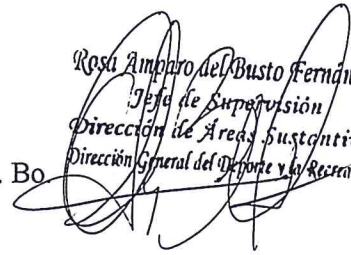 Rosa Amparo del Busto Fernán
Jefe de Supervisión
Dirección de Áreas Sustanti
Dirección General del Deporte y la Recrea
. Bo.